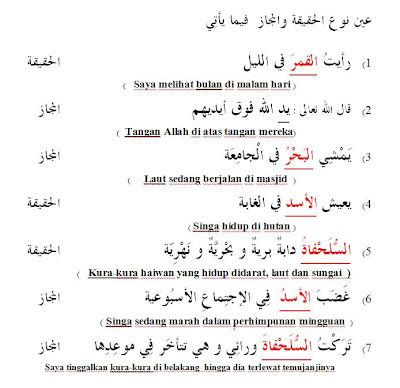 عين نوع الحقيقة والمجاز فيما يأتي
1) رأيتُ القمرَ في الليل الحقيقة
( Saya melihat bulan di malam hari )
2) قال الله تعالى : يد الله فوق أيديهم المجاز
( Tangan Allah di atas tangan mereka)
3) يَمْشِي البَحْرُ في الْجامِعَة المجاز
( Laut sedang berjalan di masjid )
4) يعيش الأسد في الغابة الحقيقة
( Singa hidup di hutan )
5) السُّلَحْفاةُ دابةٌ بريةٌ و بَحْريَّةٌ و نَهْرِيّة الحقيقة
( Kura-kura haiwan yang hidup didarat, laut dan sungai )
6) غَضَبَ الأسدُ فِي الإجتِماعِ الأسبُوعية المجاز
( Singa sedang marah dalam perhimpunan mingguan )
7) تَركْتُ السُّلَحْفاةَ ورائي و هي تتأخَر في موعدِها المجاز
Saya tinggalkan kura-kura di belakang hingga dia terlewat temujanjinya